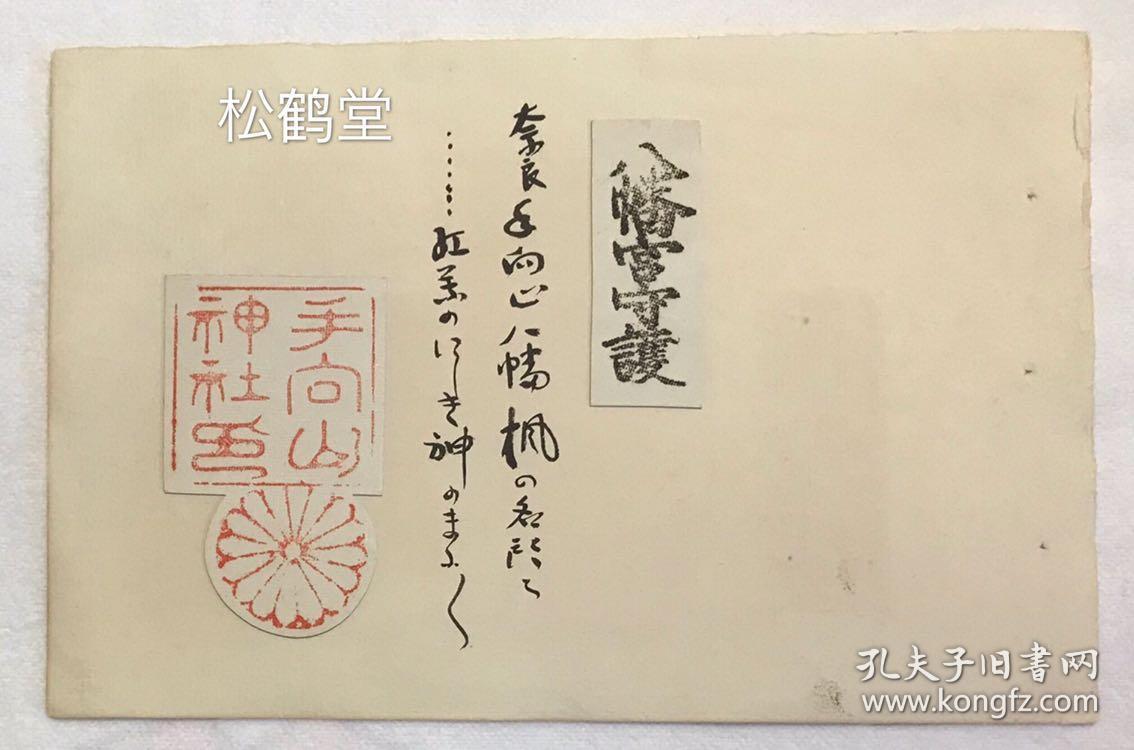 松鹤堂
八幡宮守護
奈良手向山八幡楓の名所
‥‥‥紅葉のにしき神のまにく
手向山
神社印
孔夫子旧书网
www.kongfz.com